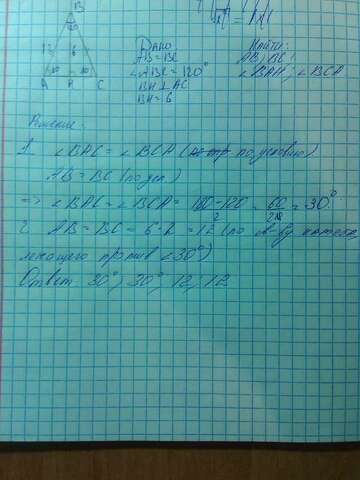 B
12 6
A H C
Дано
AB = BC
∠ABC = 120°
BH ⊥ AC
BH = 6
Найти:
AB; BC;
∠BAH; ∠BCA
Решение:
1. ∠BAC = ∠BCA ( по условию)
AB = BC (по усл)
=> ∠BAC = ∠BCA = 180-120/2 = 60/2 = 30°.
2. AB = BC = 6·2 = 12 (по св-ву катета
лежащего против ∠30°)
Ответ 30°; 30°; 12; 12